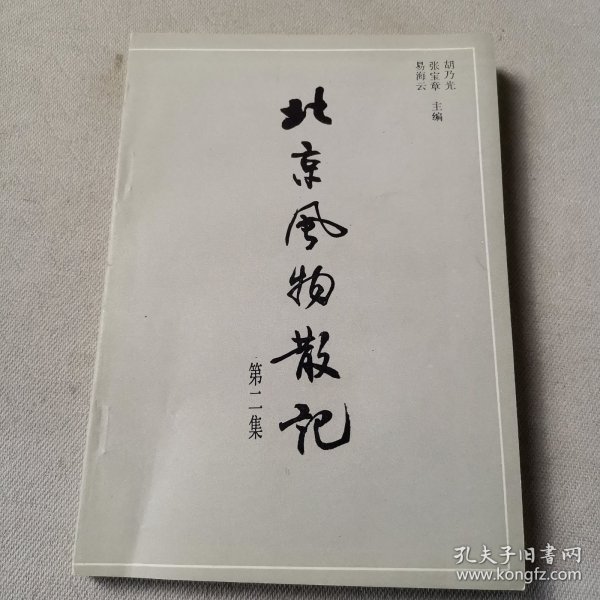 胡乃光
张宝章 主编
易海云
北京風物散记
第二集
孔夫子旧书网
www.kongfz.com